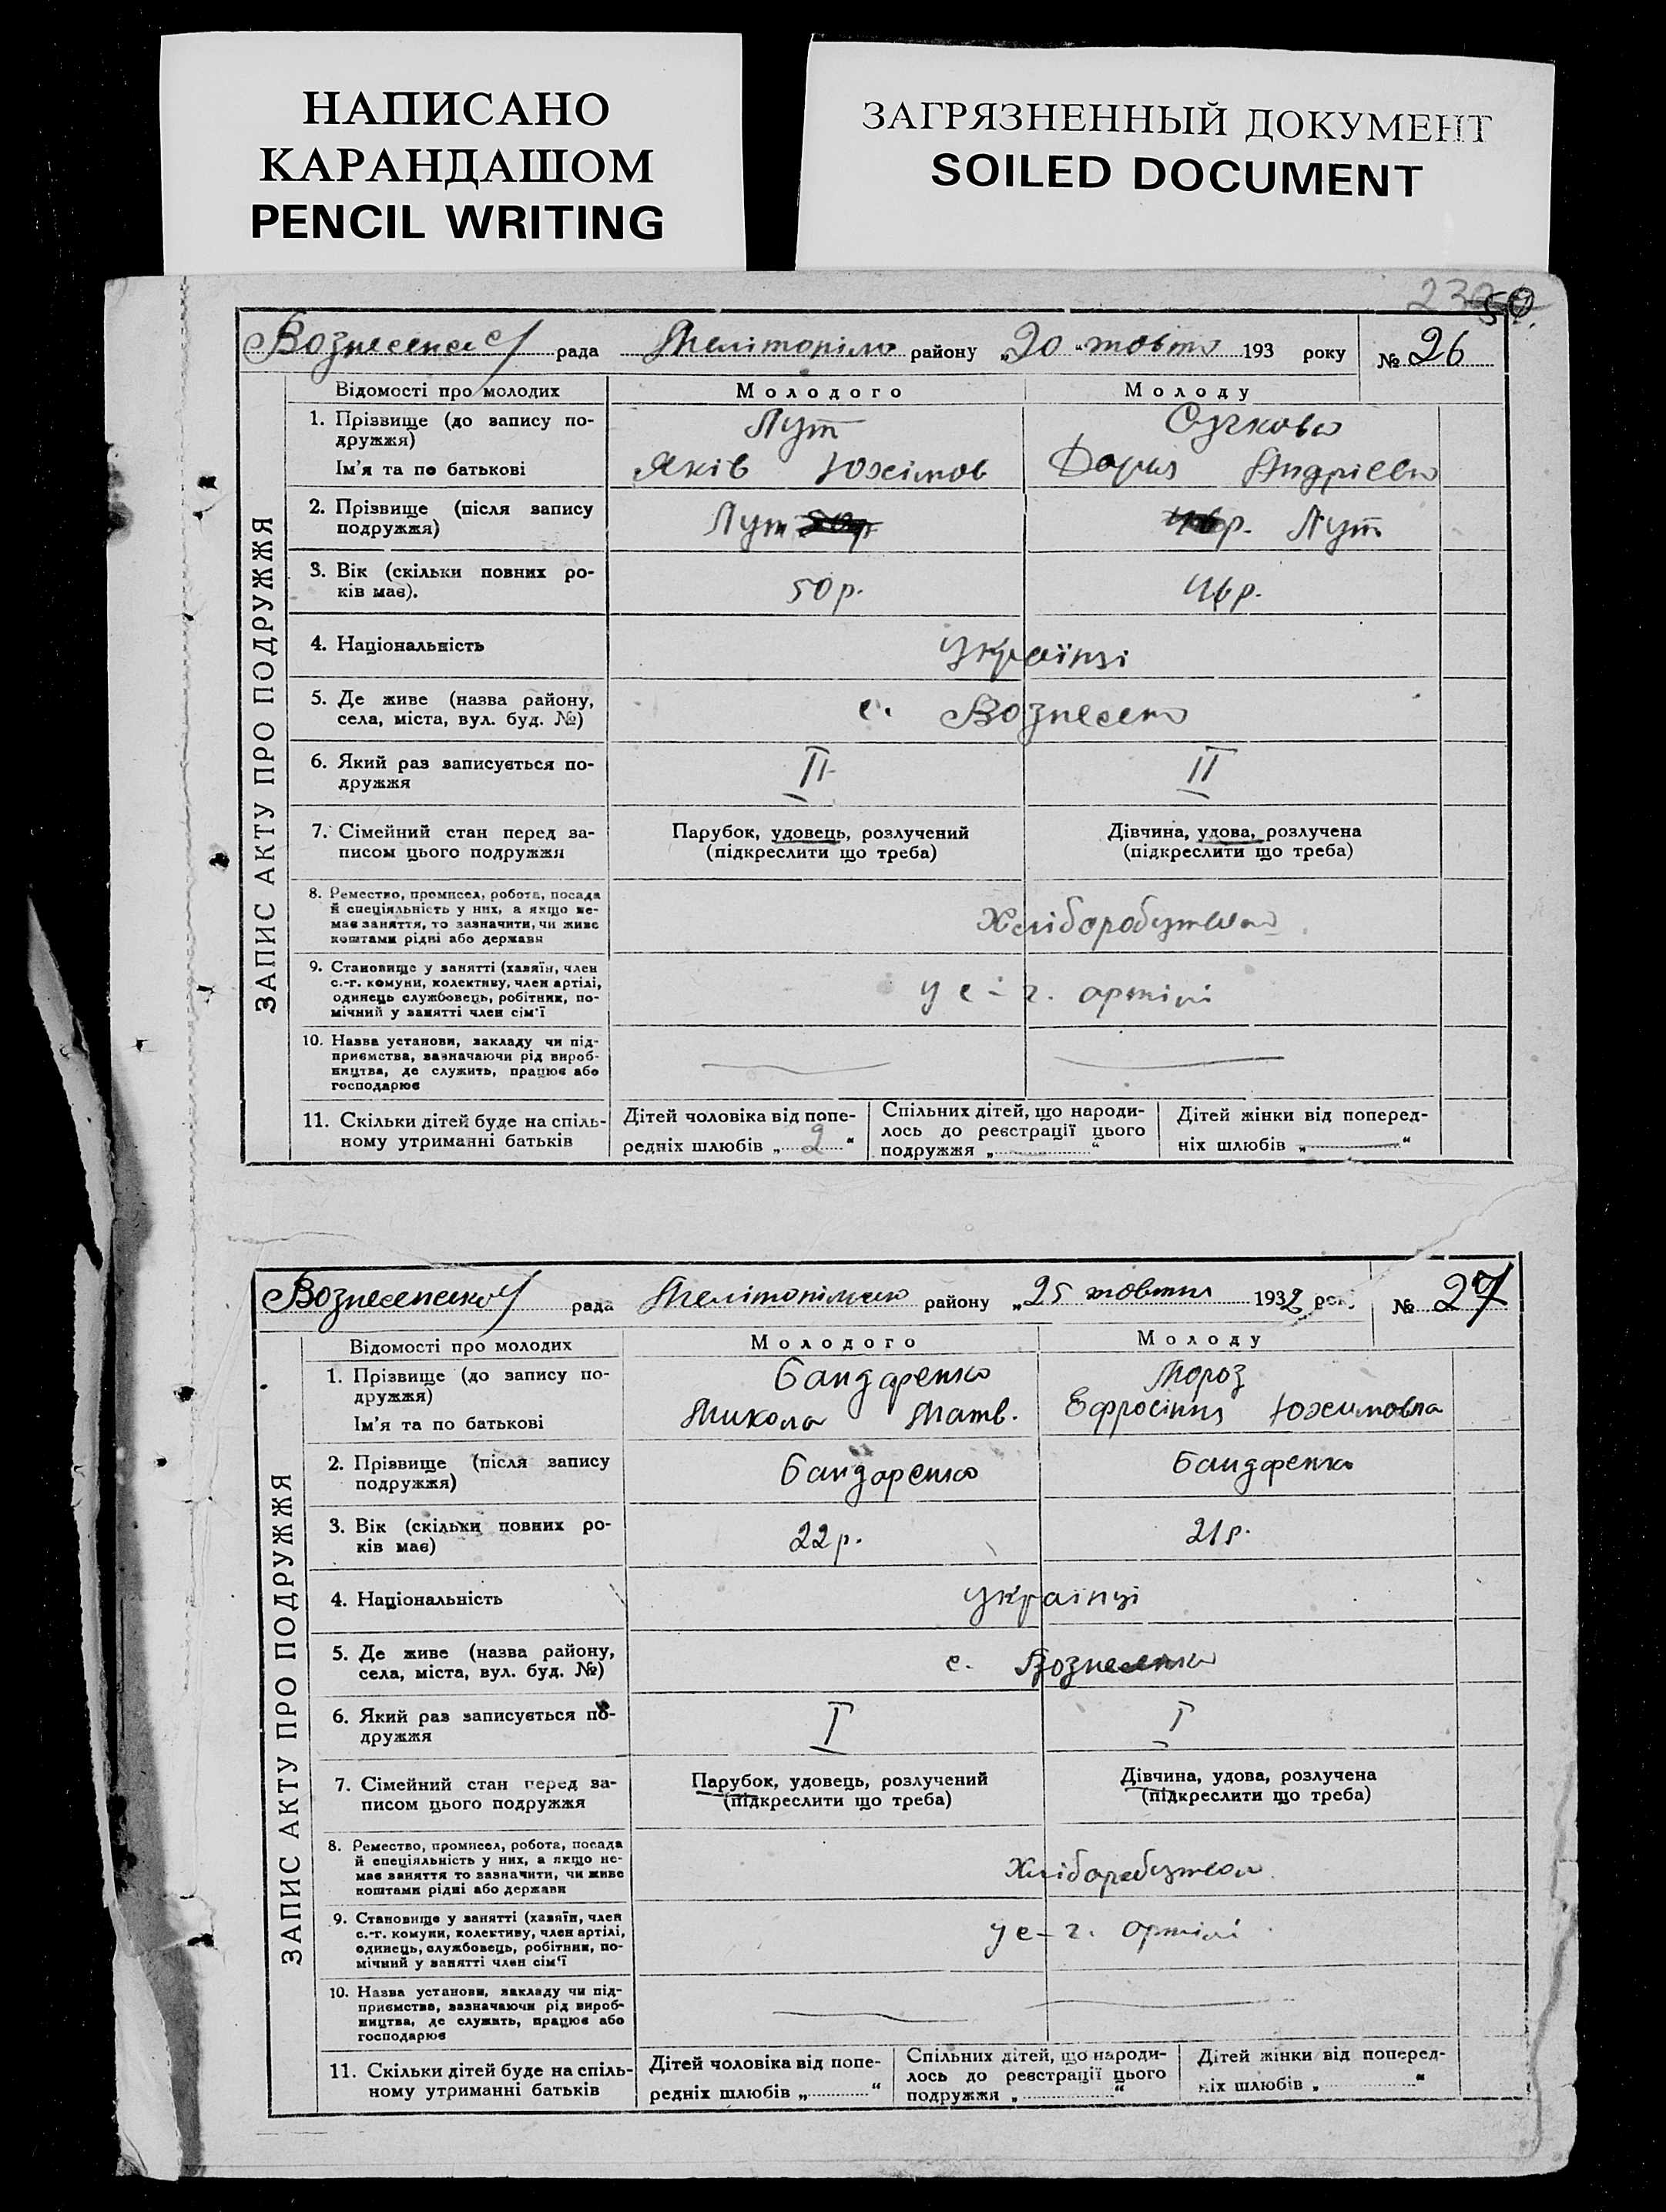 НАПИСАНО
КАРАНДАШОМ
PENCIL WRITING
ЗАГРЯЗНЕННЫЙ ДОКУМЕНТ
SOILED DOCUMENT
рада району „20“ 193 року № 26
ЗАПИС АКТУ ПРО ПОДРУЖЖЯ
Відомості про молодих Молодого Молоду
1. Прізвище (до запису по-
дружжя)
Лут Сучкова
Ім'я та по батькові
Яків Юхімов Дария Андрієвна
2. Прізвище (після запису
подружжя)
Лут р. Лут
3. Вік (скільки повних ро-
ків має).
50 р. 46 р.
4. Національність
Українці
5. Де живе (назва району,
села, міста, вул. буд. №)
с.
6. Який раз записується по-
дружжя
II II
7. Сімейний стан перед за-
писом цього подружжя
Парубок, удовець, розлучений
(підкреслити що треба)
Дівчина, удова, розлучена
(підкреслити що треба)
8. Ремество, промисел, робота, посада
й спеціяльність у них, а якщо не-
має заняття, то зазначити, чи живе
коштами рідні або держави
9. Становище у занятті (хазяїн, член
с.-г. комуни, колективу, член артілі,
одинець службовець, робітник, по-
мічний у занятті член сім'ї
у с-г. артілі
10. Назва установи, закладу чи під-
приємства, зазначаючи рід вироб-
ництва, де служить, працює або
господарює
11. Скільки дітей буде на спіль-
ному утриманні батьків
Дітей чоловіка від попе-
редніх шлюбів „2“
Спільних дітей, що народи-
лось до реєстрації цього
подружжя „ “
Дітей жінки від поперед-
ніх шлюбів „ “
рада району „25 жовтня 1932 рок. № 27
ЗАПИС АКТУ ПРО ПОДРУЖЖЯ
Відомості про молодих Молодого Молоду
1. Прізвище (до запису по-
дружжя)
Бандаренко Мороз
Ім'я та по батькові
Микола Матв. Ефросіння Юхимовна
2. Прізвище (після запису
подружжя)
Бандаренко Бандаренко
3. Вік (скільки повних ро-
ків має)
22 р. 21 р.
4. Національність
Українці
5. Де живе (назва району,
села, міста, вул. буд. №)
с. Вознесенка
6. Який раз записується по-
дружжя
I I
7. Сімейний стан перед за-
писом цього подружжя
Парубок, удовець, розлучений
(підкреслити що треба)
Дівчина, удова, розлучена
(підкреслити що треба)
8. Ремество, промисел, робота, посада
й спеціяльність у них, а якщо не-
має заняття то зазначити, чи живе
коштами рідні або держави
9. Становище у занятті (хазяїн, член
с.-г. комуни, колективу, член артілі,
одинець, службовець, робітник, по-
мічний у занятті член сім'ї
у с-г. артілі
10. Назва установи, закладу чи під-
приємства, зазначаючи рід вироб-
ництва, де служить, працює або
господарює
11. Скільки дітей буде на спіль-
ному утриманні батьків
Дітей чоловіка від попе-
редніх шлюбів „ “
Спільних дітей, що народи-
лось до реєстрації цього
подружжя „ “
Дітей жінки від поперед-
ніх шлюбів „ “